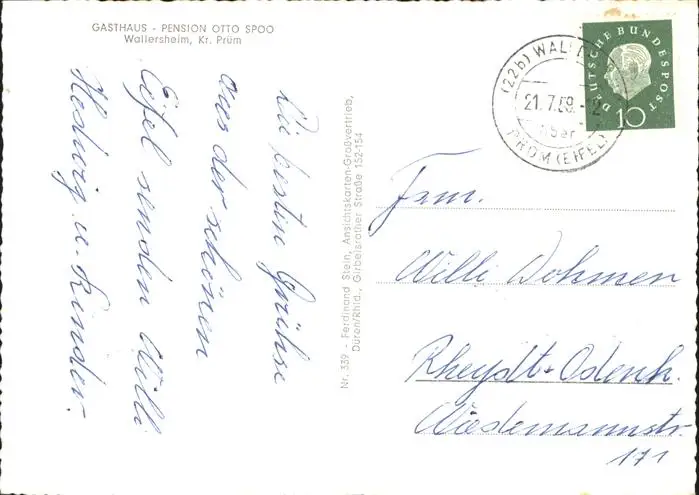 GASTHAUS - PENSION OTTO SPOO
Wallersheim, Kr. Prüm
Die besten Grühse
aus der schönen
Eifel senden Willi
Hedwig u. Kinder.
Nr. 339 - Ferdinand Stein, Ansichtskarten-Großvertrieb,
Düren/Rhld., Girbelsrather Straße 152-154
DEUTSCHE BUNDESPOST
10
(22b)
21.7.59
über
PRÜM (EIFEL)
Fam.
Willi Dohmen
Rheydt-Odenk.
Wiedemannstr.
171